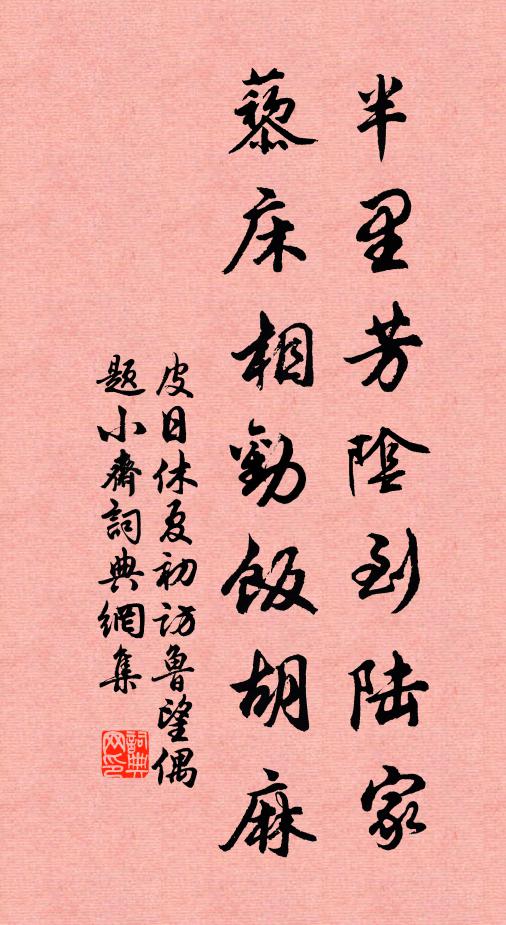 半里芳陰到陆家
藜床相勸飯胡麻
皮日休夏初访鲁望偶
题小齋詞典網集
詞典
网印